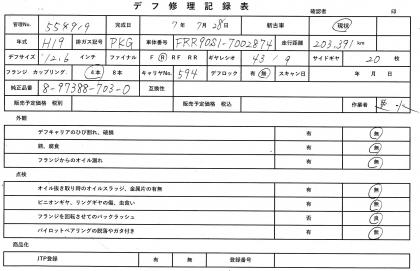 デフ修理記録表
確認者 印
管理No. 554919 完成日 7年 7月 28日 新古車 現状
年式 H19 排ガス記号 PKG 車体番号 FRR90S1-7002874 走行距離 203.391 km
デフサイズ 12.6 インチ ファイナル F R RF RR ギヤレシオ 43 / 9 サイドギヤ 20 枚
フランジ カップリング 4本 8本 キャリヤNo. 594 デフロック 有 無 スキャン日 年 月 日
純正品番 8-97388-703-0 互換性
販売予定価格 税別 販売予定価格 税込 作業者
外観
デフキャリアのひび割れ、破損 有 無
錆、腐食 有 無
フランジからのオイル漏れ 有 無
点検
オイル抜き取り時のオイルスラッジ、金属片の有無 有 無
ピニオンギヤ、リングギヤの傷、虫食い 有 無
フランジを回転させてのバックラッシュ 否 良
パイロットベアリングの脱落やガタ付き 有 無
商品化
JTP登録 有 無 登録番号